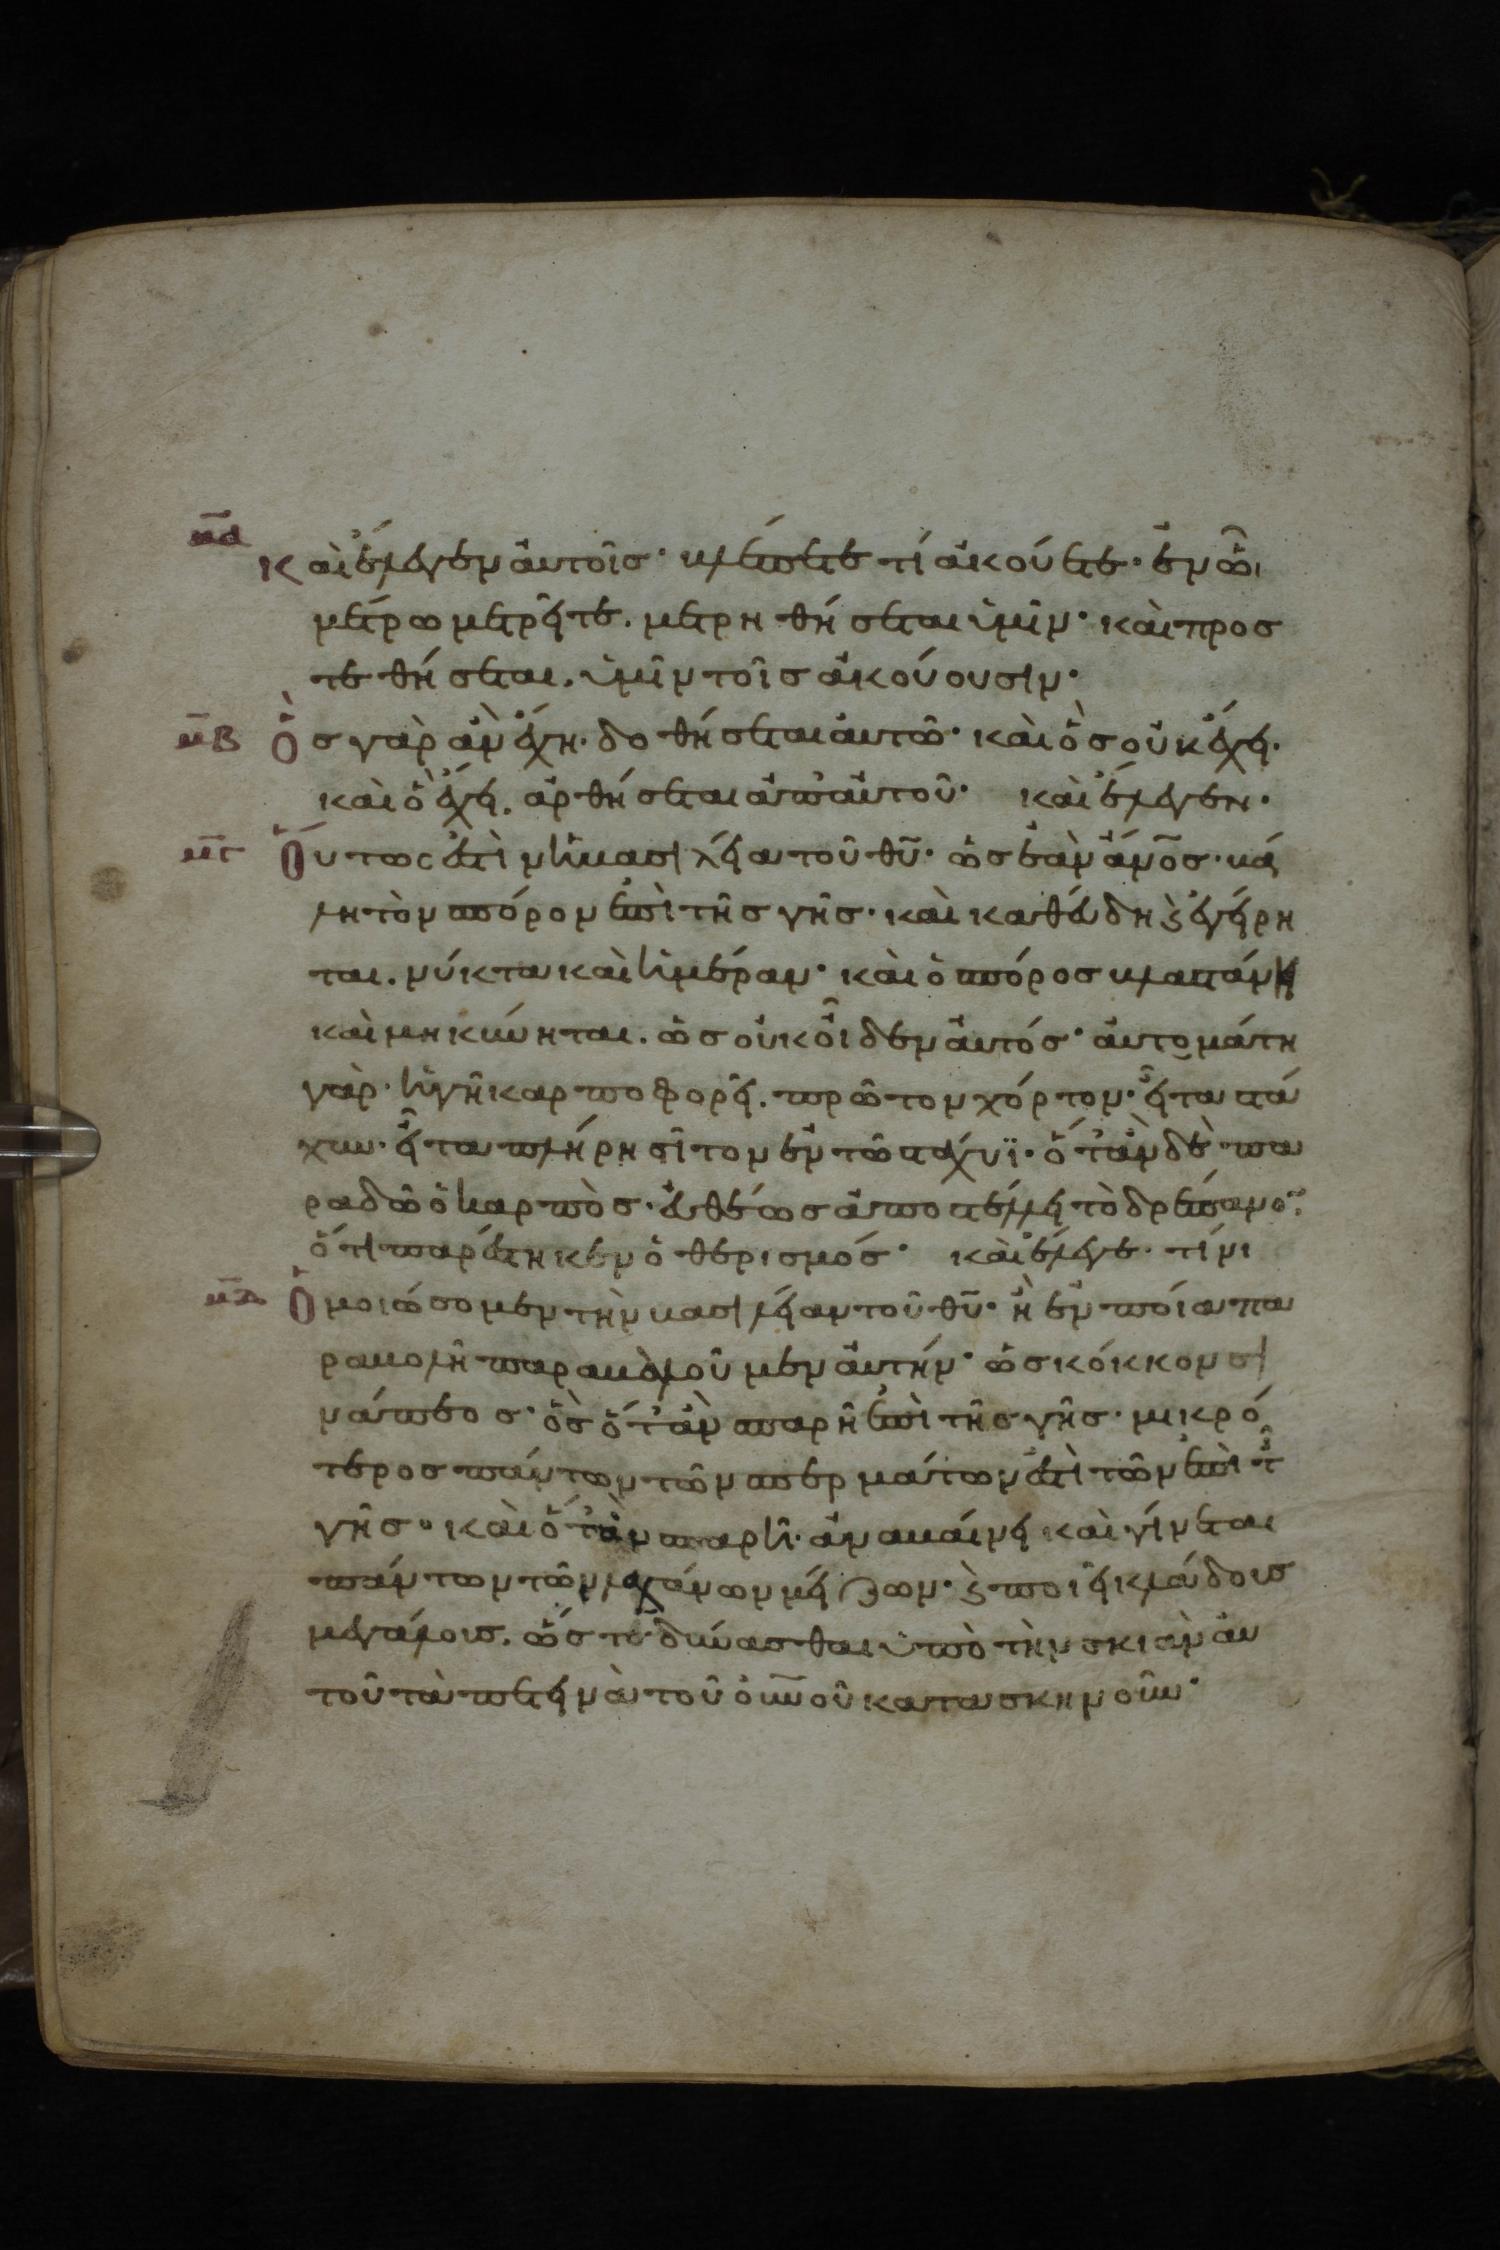 μα
Καὶ ἔλεγεν αὐτοῖσ· βλέπετε τί ἀκούετε· ἐν ὧι
μέτρω μετρεῖτε. μετρηθήσεται ὑμῖν· καὶ προσ
τεθήσεται. ὑμῖν τοῖσ ἀκούουσιν·
μβ Ὃσ γὰρ ἂν ἔχη· δοθήσεται αὐτῶ· καὶ ὃσ οὐκ ἔχει·
καὶ ὃ ἔχει. ἀρθήσεται ἀπ' αὐτοῦ· καὶ ἔλεγεν·
μγ Οὕτως ἐστὶ ἡ βασιλεία τοῦ θ̅υ̅· ὡσ ἐὰν ἄν̅ο̅σ· βά
λη τὸν σπόρον ἐπὶ τῆσ γῆσ· καὶ καθεύδη ϛ̀ ἐγείρη
ται. νύκτα καὶ ἡμέραν· καὶ ὁ σπόροσ βλαστάνη
καὶ μηκύνηται. ὡσ οὐκ οἶδεν αὐτόσ· αὐτομάτη
γὰρ· ἡ γῆ καρποφορεῖ. πρῶτον χόρτον· εἶτα στά
χυν· εἶτα πλήρη σῖτον ἐν τῶ στάχυϊ· ὅταν δὲ πα
ραδῶ ὁ καρπὸσ· εὐθέωσ ἀποστέλλει τὸ δρέπανο̅·
ὅτι παρέστηκεν ὁ θερισμόσ· καὶ ἔλεγε· τίνι
μδ Ὁμοιώσομεν τὴν βασιλείαν τοῦ θ̅υ̅· ἢ ἐν ποία πα
ραβολῆ παραβάλουμεν αὐτήν· ὡσ κόκκον σι
νάπεοσ· ὃσ ὅταν σπαρῆ ἐπὶ τῆσ γῆσ· μικρό
τεροσ πάντων τῶν σπερμάτων ἐστὶ τῶν ἐπὶ τῆ
γῆσ· καὶ ὅταν σπαρῆ· ἀναβαίνει καὶ γίνεται
πάντων τῶν λαχάνων μείζων· ϛ̀ ποιεῖ κλάδουσ
μεγάλουσ. ὥστε δύνασθαι ὑπὸ τὴν σκιὰν αὐ
τοῦ τὰ πετεινὰ τοῦ ο̅υ̅ν̅ο̅ῦ κατασκηνοῦν·